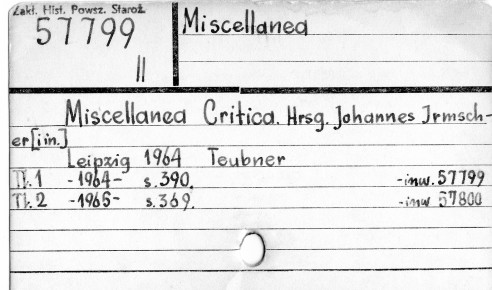 Zakł. Hist. Powsz. Staroż.
57799
II
Miscellanea
Miscellanea Critica. Hrsg. Johannes Irmsch-
er [i in.]
Leipzig 1964 Teubner
Tl. 1 -1964- s. 390. -inw. 57799
Tl. 2 -1965- s. 369. -inw 57800